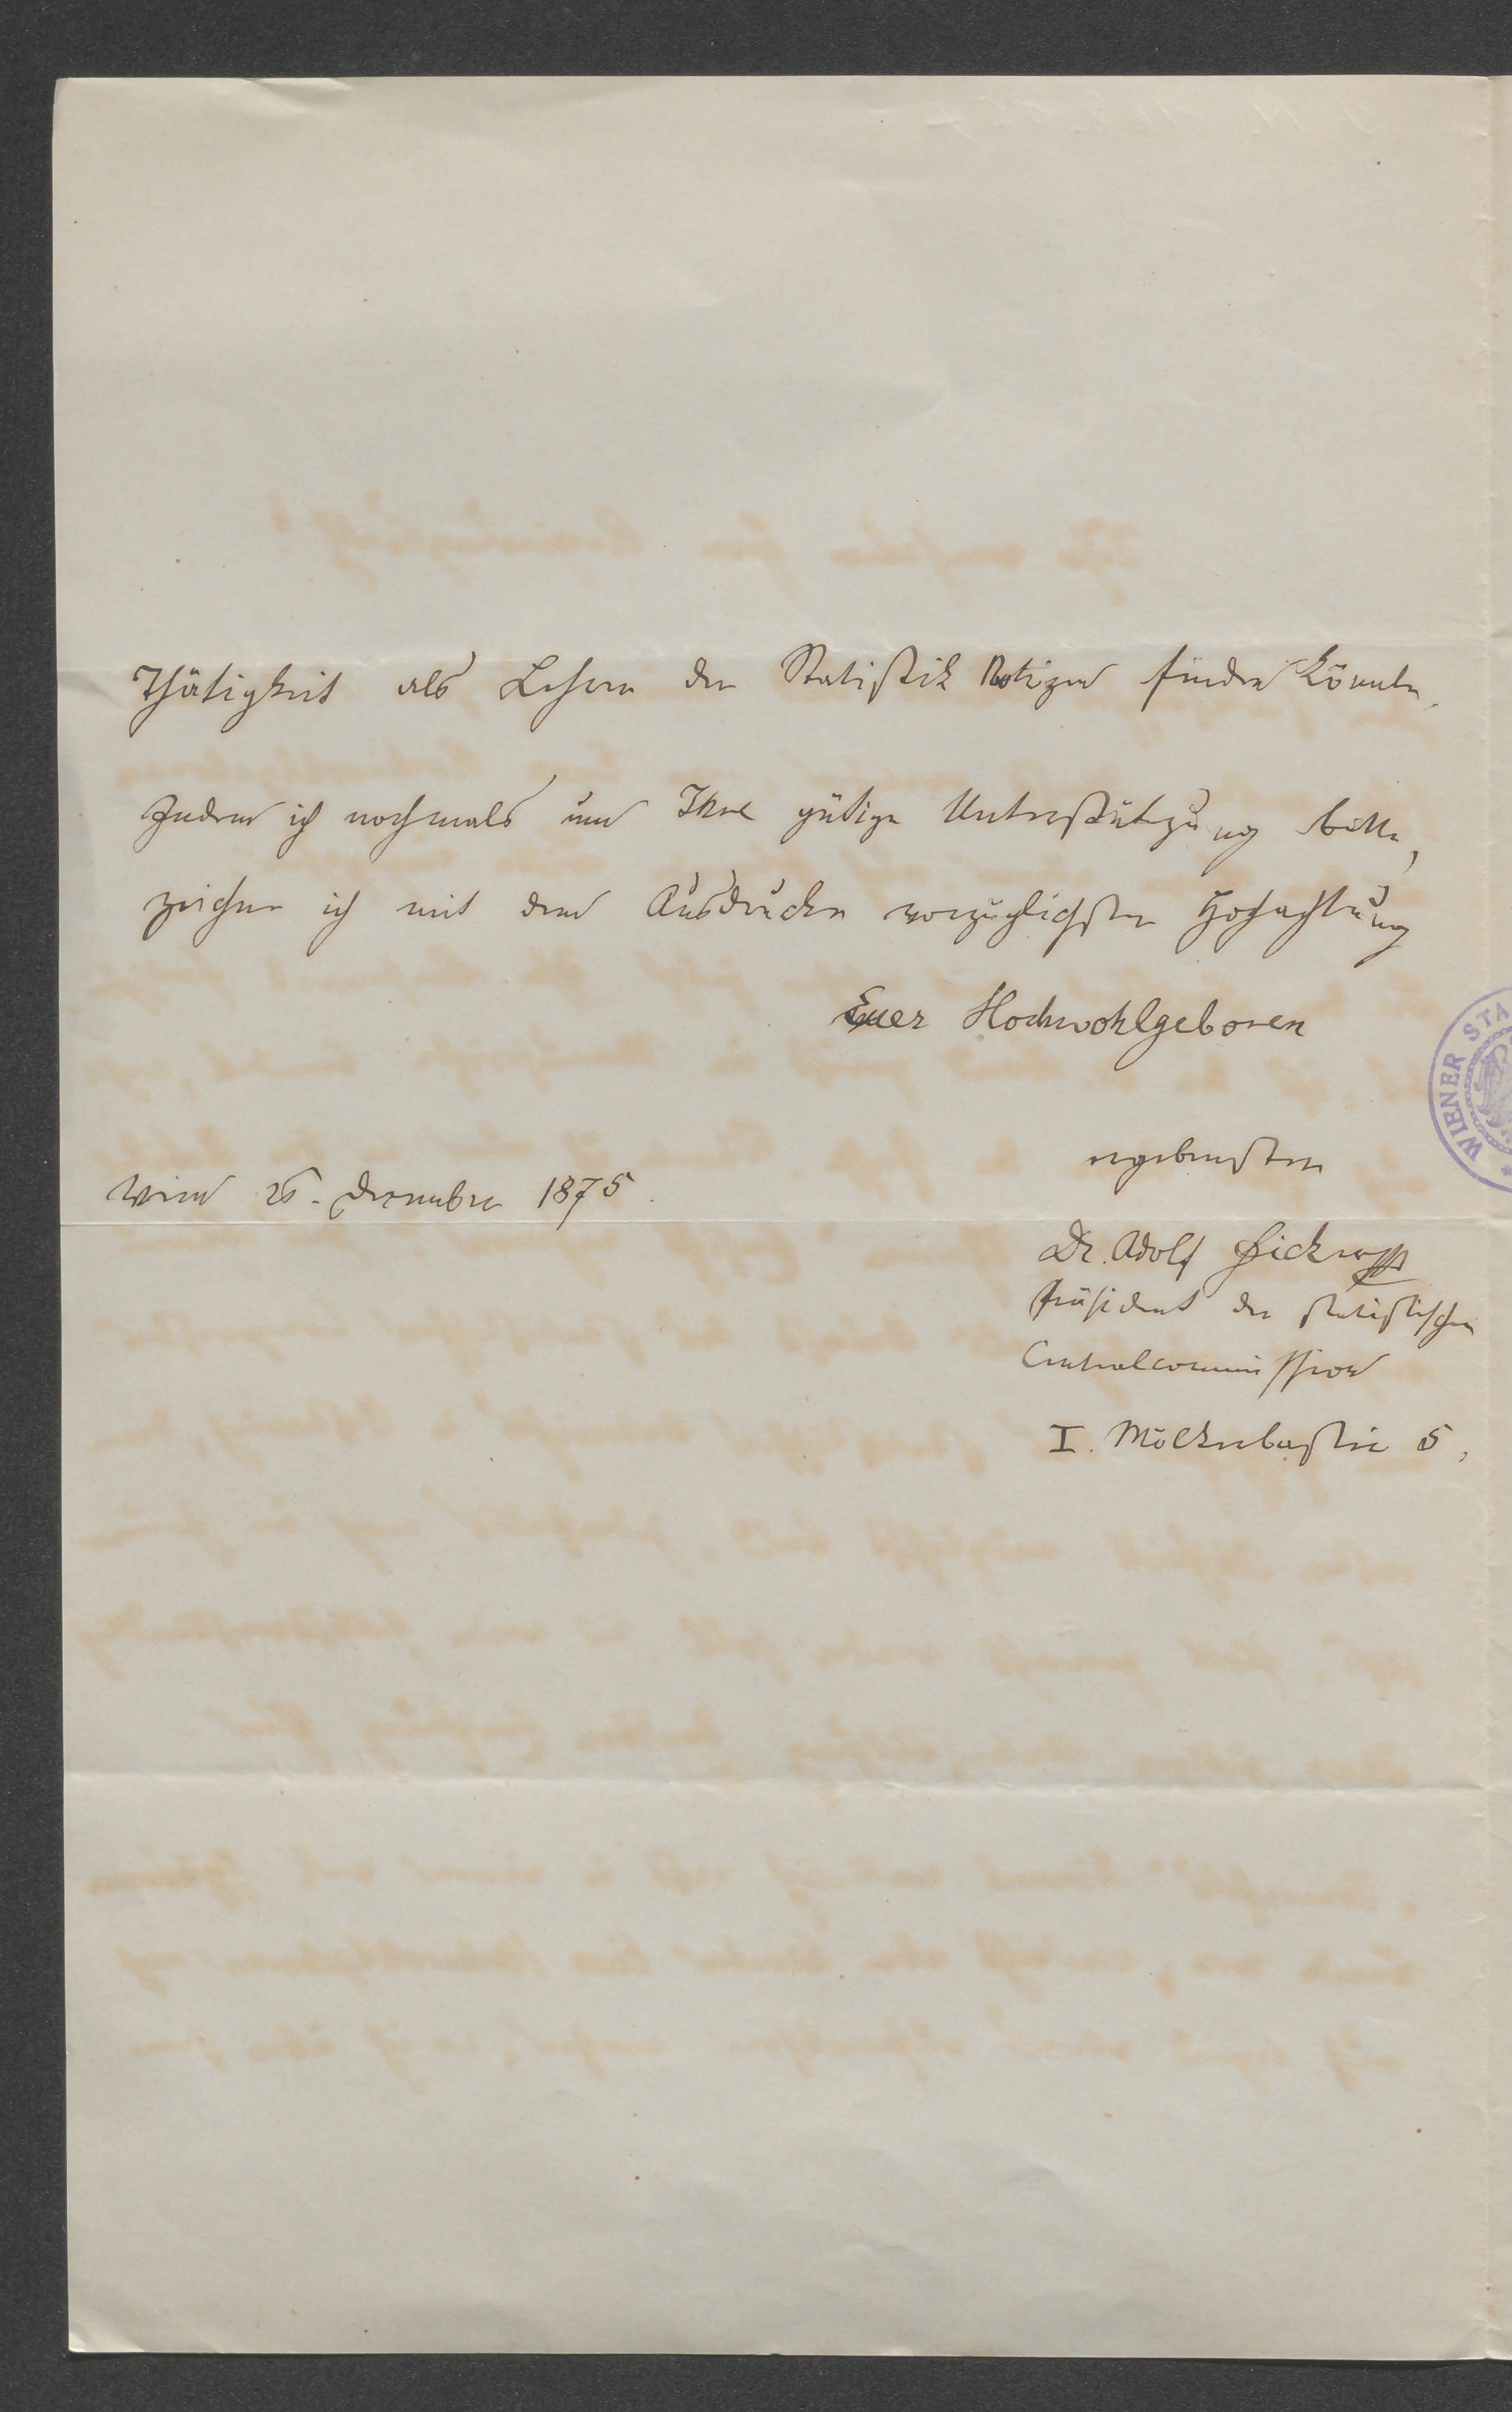 Thätigkeit als Lehrer der Statistik Notizen finden könnte.
Indem ich nochmals um Ihre gütige Unterstützung bitte,
zeichne ich mit dem Ausdrucke vorzüglichster Hochachtung
Euer Hochwohlgeboren
ergebenster
Wien 26. Dezember 1875.
Dr. Adolf Ficker
Präsident der statistischen
Centralcommission
I. Mölkerbastei 5,
WIENER STA